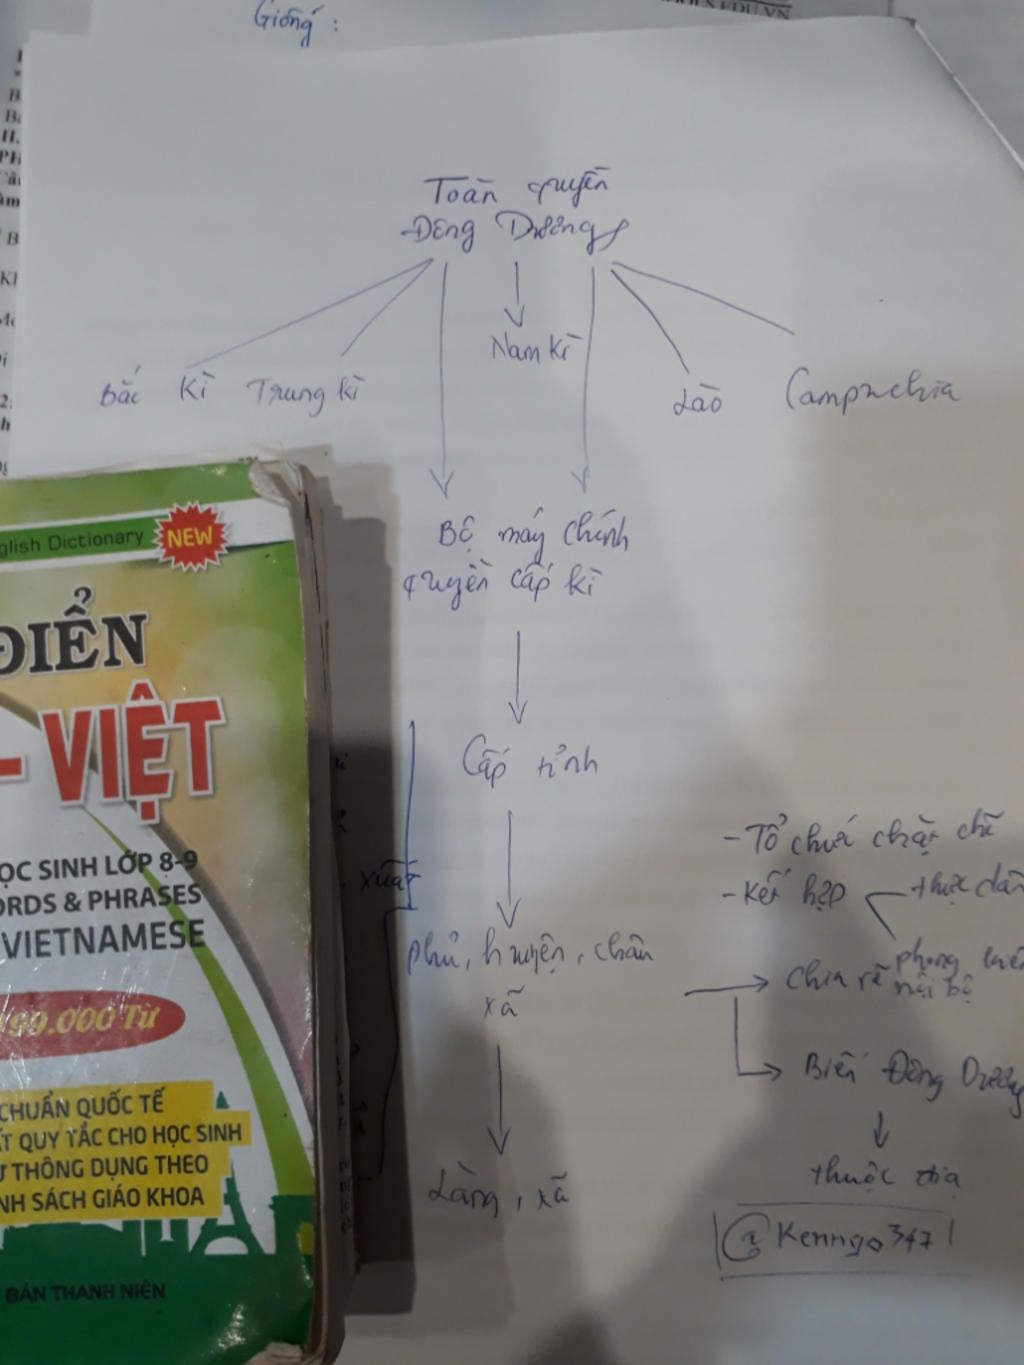 Giống :
EDU.VN
Toàn quyền
Đông Dương
Bắc Kì
Trung kì
Nam Kì
Lào
Campuchia
Bộ máy chính
quyền cấp kì
Cấp tỉnh
phủ, huyện, châu
xã
Làng, xã
- Tổ chức chặt chẽ
- Kết hợp
thực dân
phong
Chia rẽ nội bộ
Biến Đông Dương
thuộc địa
@Kenngo347
glish Dictionary
NEW
ĐIỂN
- VIỆT
ỌC SINH LỚP 8-9
ORDS & PHRASES
VIETNAMESE
99.000 Từ
CHUẨN QUỐC TẾ
ẤT QUY TẮC CHO HỌC SINH
Ừ THÔNG DỤNG THEO
NH SÁCH GIÁO KHOA
BẢN THANH NIÊN